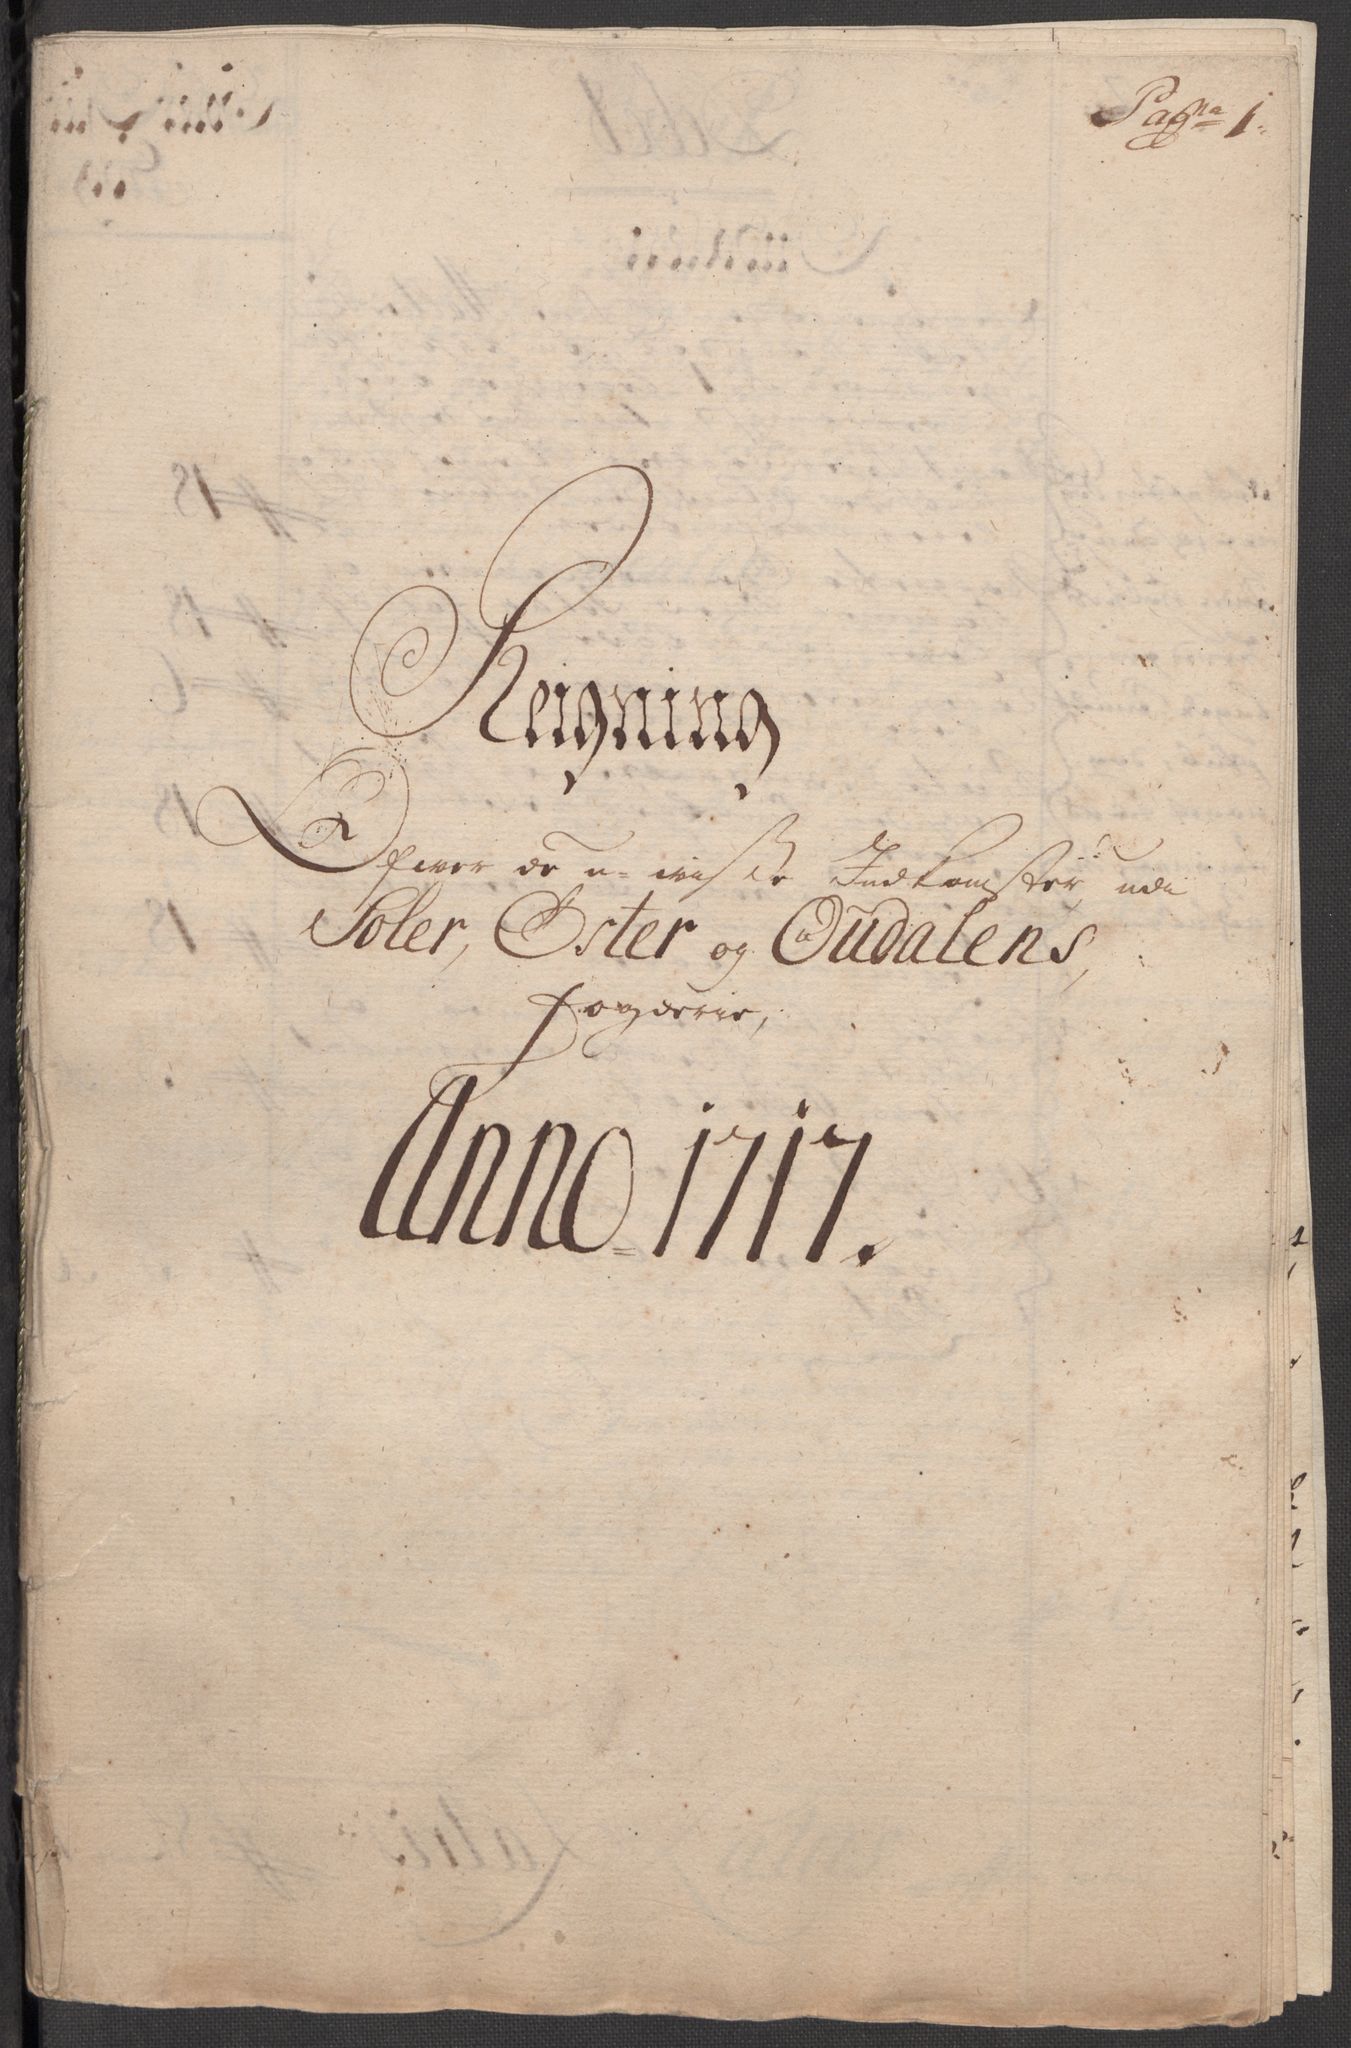 Pagna 1.
Reigning
Ofwer de u-wisse Indkomster udi
Soler, Öster og Oudalens,
fogderie,
Anno 1717.